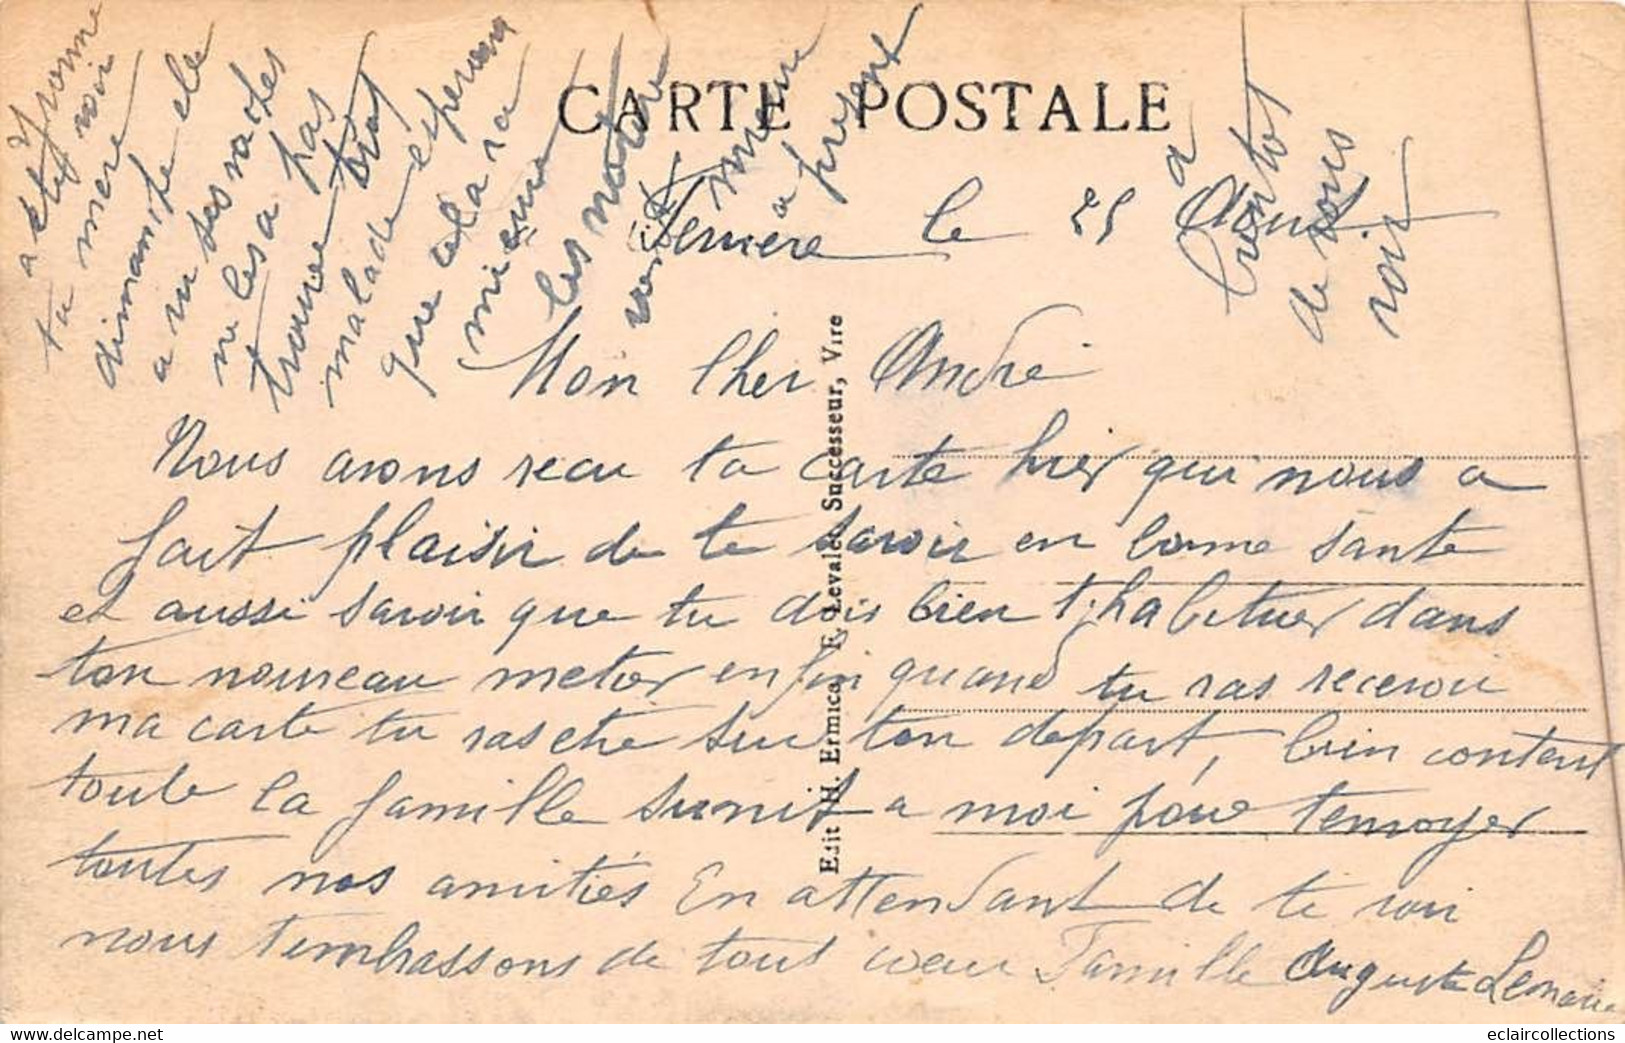 CARTE POSTALE
le 25 Aout
Mon cher André
Nous avons recu ta carte hier qui nous a
fait plaisir de te savoir en bonne sante
et aussi savoir que tu dois bien t'habituer dans
ton nouveau metier enfin quand tu vas recevoir
ma carte tu vas etre sur ton depart, bien content
toute la famille sunit a moi pour tenvoyer
toutes nos amitiés En attendant de te voir
nous t'embrassons de tout coeur Famille Auguste Lemoine
Yvonne
a été voir
ta mere
dimanche elle
a vu ses vaches
ne les a pas
trouvée trop
malade esperons
que cela sa
les notre
vont
mieux
a present
a
bientot
de vous
voir
Edit H. Ermica. F. Levalet Successeur, Vire
eclaircollections